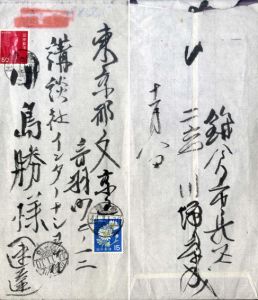 東京都文京区
音羽町二ー一二
講談社インターナショナル
川島勝様
速達
50
15
鎌倉市長谷
二六四
川端康成
十一月八日